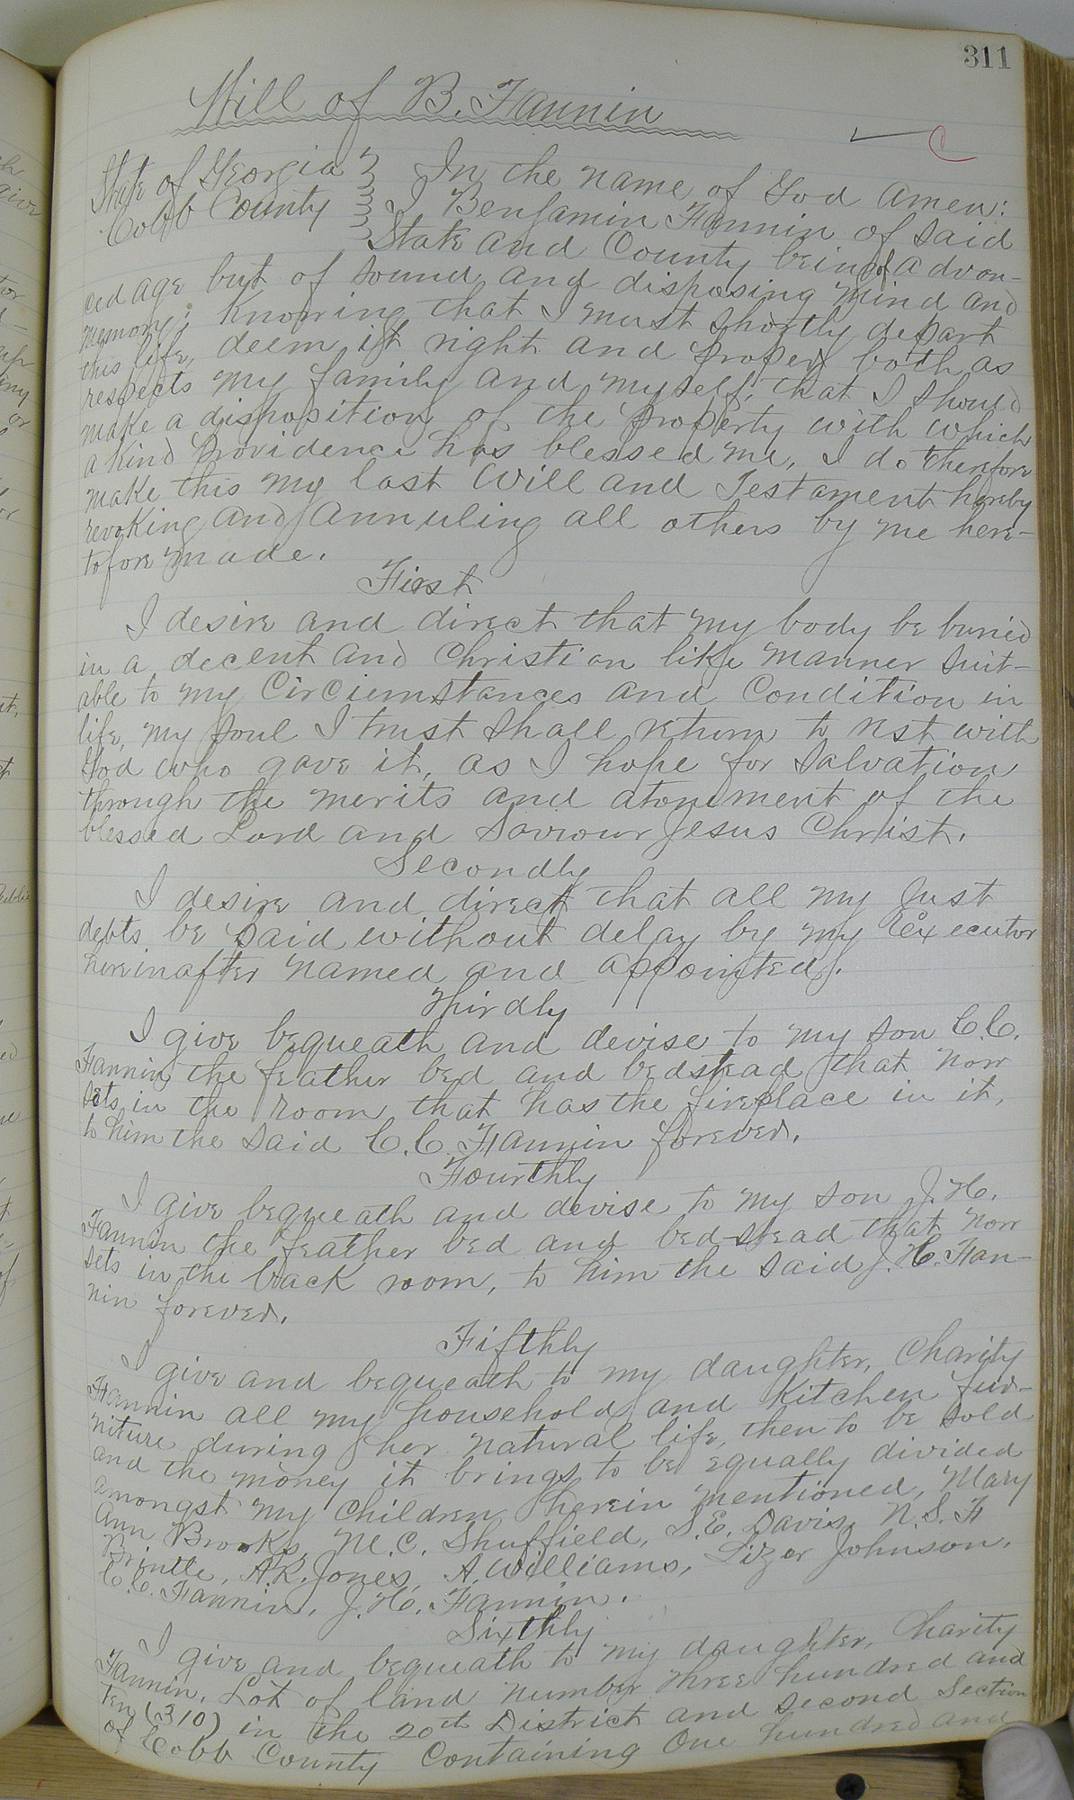 311
Will of B. Fannin
State of Georgia } In the name of God Amen:
Cobb County } I Benjamin Fannin of said
State and County being of advan-
ced age but of sound and disposing mind and
memory; Knowing that I must shortly depart
this life, deem it right and proper both as
respects my family and myself, that I should
make a disposition of the property with which
a kind Providence has blessed me, I do therefore
make this my last Will and Testament hereby
revoking and annuling all others by me here-
tofore made.
First
I desire and direct that my body be buried
in a decent and Christian like manner suit-
able to my Circiemstances and Condition in
life, my soul I trust shall return to rest with
God who gave it, as I hope for Salvation
through the merits and atonement of the
blessed Lord and Saviour Jesus Christ.
Secondly
I desire and direct that all my Just
debts be paid without delay by my Executor
hereinafter named and appointed.
Thirdly
I give bequeath and devise to my son C.C.
Fannin the feather bed and bedstead that now
sets in the room that has the fireplace in it,
to him the said C.C. Fannin forever.
Fourthly
I give bequeath and devise to my son J.H.
Fannin the feather bed and bed-stead that now
sets in the back room, to him the said J.H. Fan-
nin forever.
Fifthly
I give and bequeath to my daughter, Charity
Fannin all my household and Kitchen fur-
niture during her natural life, then to be sold
and the money it brings to be equally divided
amongst my Children herein mentioned, Mary
Ann Brooks, M.C. Shuffield, S.E. Davis, N.S.F
Brintle, A.R. Jones, A. Williams, Lizer Johnson,
C.C. Fannin, J.H. Fannin.
Sixthly
I give and bequeath to my daughter, Charity
Fannin, Lot of land number three hundred and
ten (310) in the 20th District and second Section
of Cobb County Containing One hundred and